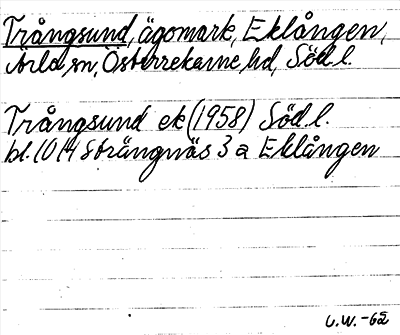 Trångsund, ägomark, Eklången,
Ärla sn, Österrekarne hd, Söd.l.
Trångsund ek (1958) Söd.l.
bl. 10 14 Strängnäs 3 a Eklången
U.W. -62